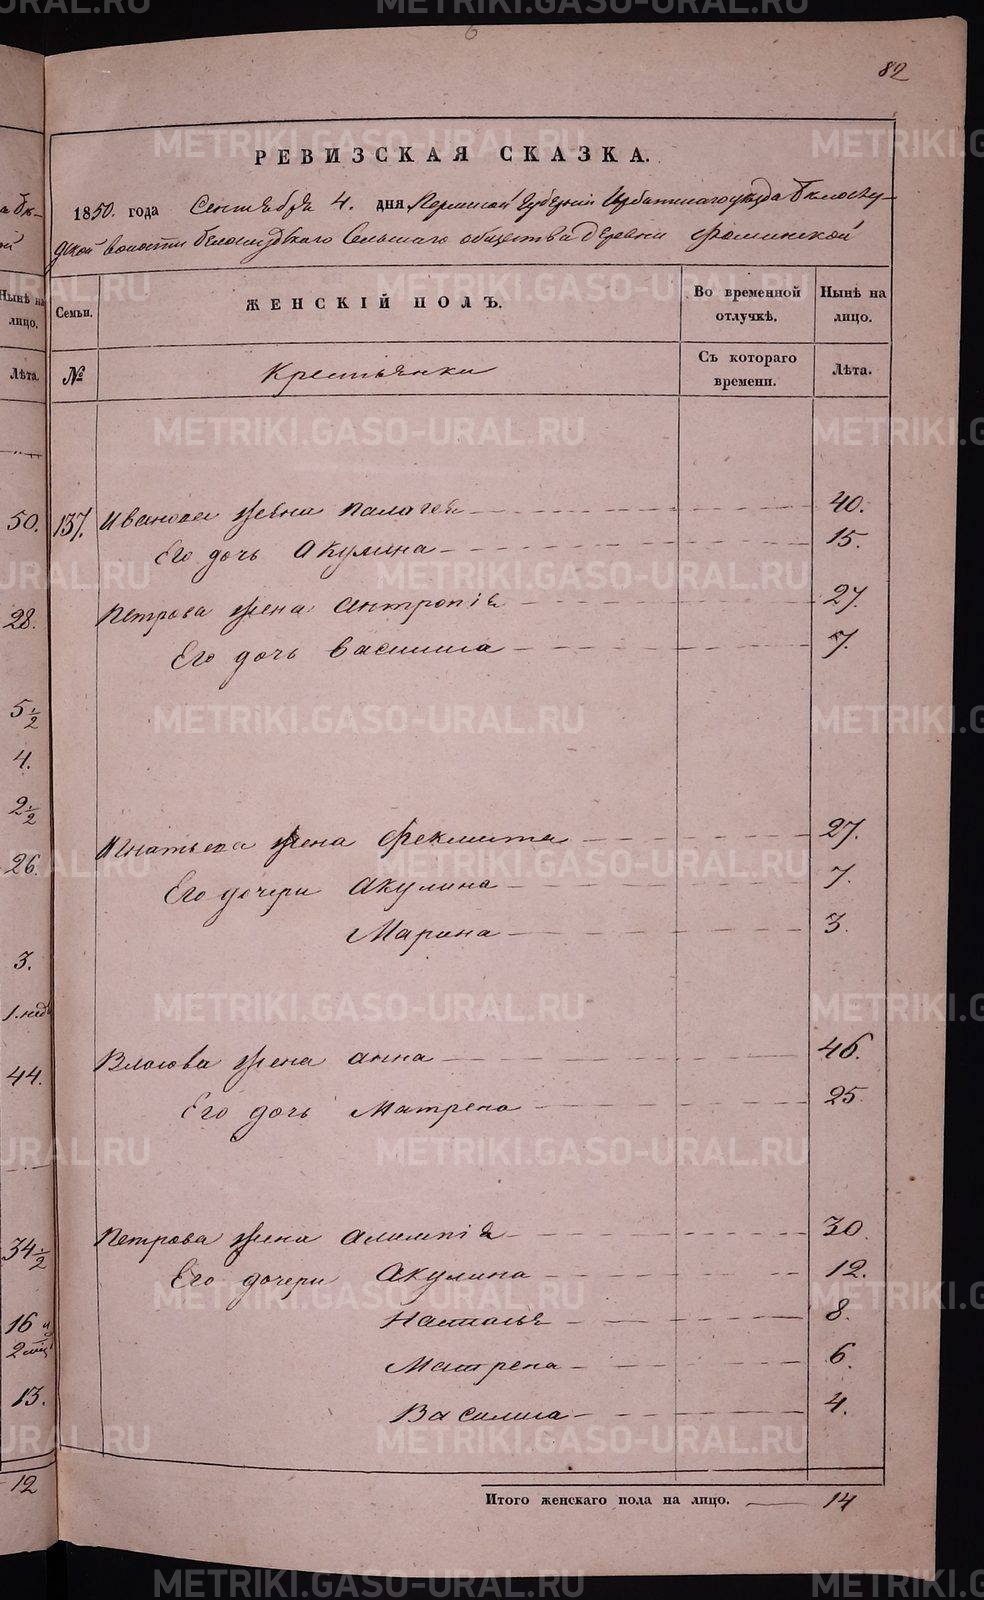 82
РЕВИЗСКАЯ СКАЗКА.
1850. года Сентября 4. дня Пермской Губернии Ирбитского уезда Белослу-
дской волости Белослудского Сельскаго общества деревни Фоминской
Семьи.
ЖЕНСКІЙ ПОЛЪ.
Во временной отлучкѣ.
Нынѣ на лицо.
№
Крестьянки
Съ котораго времени.
Лѣта.
137. Иванова жена Палагея 40.
Его дочь Акулина 15.
Петрова жена Антропія 27.
Его дочь Василиса 7.
Игнатьева жена Феклиста 27.
Его дочери Акулина 7.
Марина 3.
Власова жена Анна 46.
Его дочь Матрена 25.
Петрова жена Алимпія 30.
Его дочери Акулина 12.
Наталья 8.
Матрена 6.
Василиса 4.
Итого женскаго пола на лицо. 14
Нынѣ на
лицо.
Лѣта.
50.
28.
5 1/2
4.
2 1/2
26.
3.
44.
34 1/2
16
13.
12
METRIKI.GASO-URAL.RU